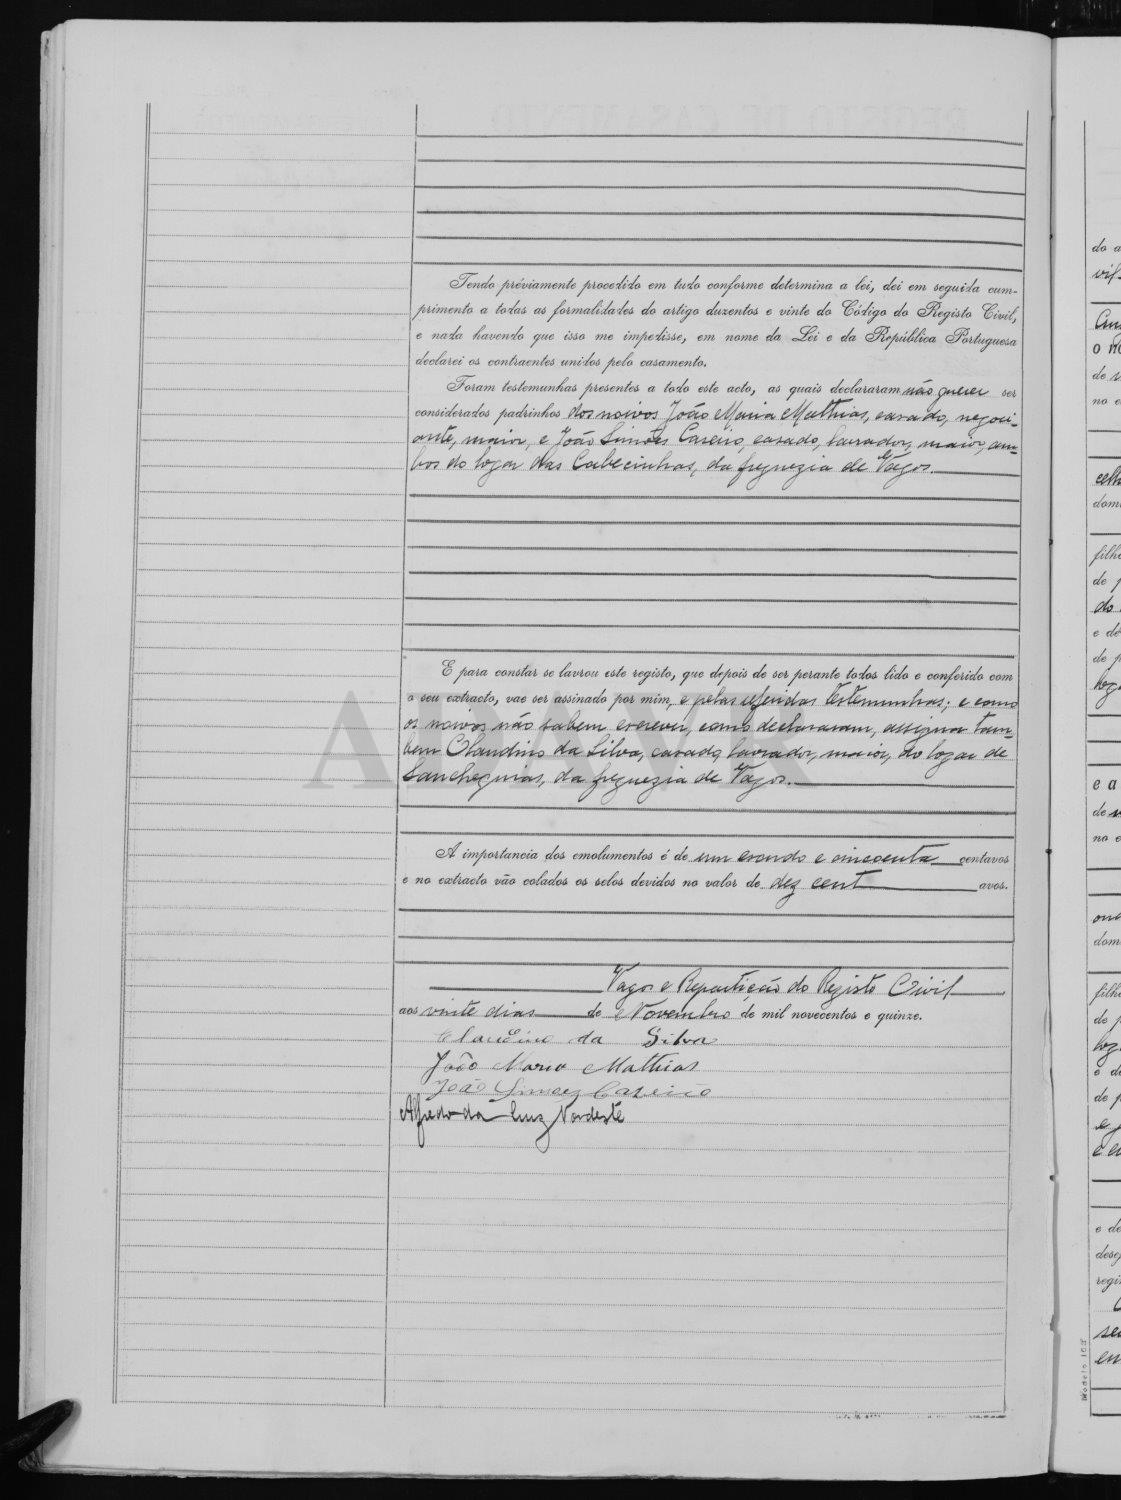 Tendo préviamente procedido em tudo conforme determina a lei, dei em seguida cum-
primento a todas as formalidades do artigo duzentos e vinte do Código do Registo Civil,
e nada havendo que isso me impedisse, em nome da Lei e da República Portuguesa
declarei os contraentes unidos pelo casamento.
Foram testemunhas presentes a todo este acto, as quais declararam não querer ser
considerados padrinhos dos noivos João Maria Mathias, casado, negoci-
ante, maior, e João Simões Careiro, casado, lavrador, maior, am-
bos do logar das Cabecinhas, da freguezia de Vagos.
E para constar se lavrou este registo, que depois de ser perante todos lido e conferido com
o seu extracto, vae ser assinado por mim, e pelas referidas testemunhas; e como
os noivos não sabem escrever, como declararam, assigna tam-
bem Claudino da Silva, casado, lavrador, maior, do logar de
Sanchequias, da freguezia de Vagos.
A importancia dos emolumentos é de um escudo e cincoenta centavos
e no extracto vão colados os selos devidos no valor de dez cent avos.
Vagos e Repartição do Registo Civil
aos vinte dias de Novembro de mil novecentos e quinze.
Claudino da Silva
João Maria Mathias
João Simões Careiro
Alfredo da Luz Nordeste